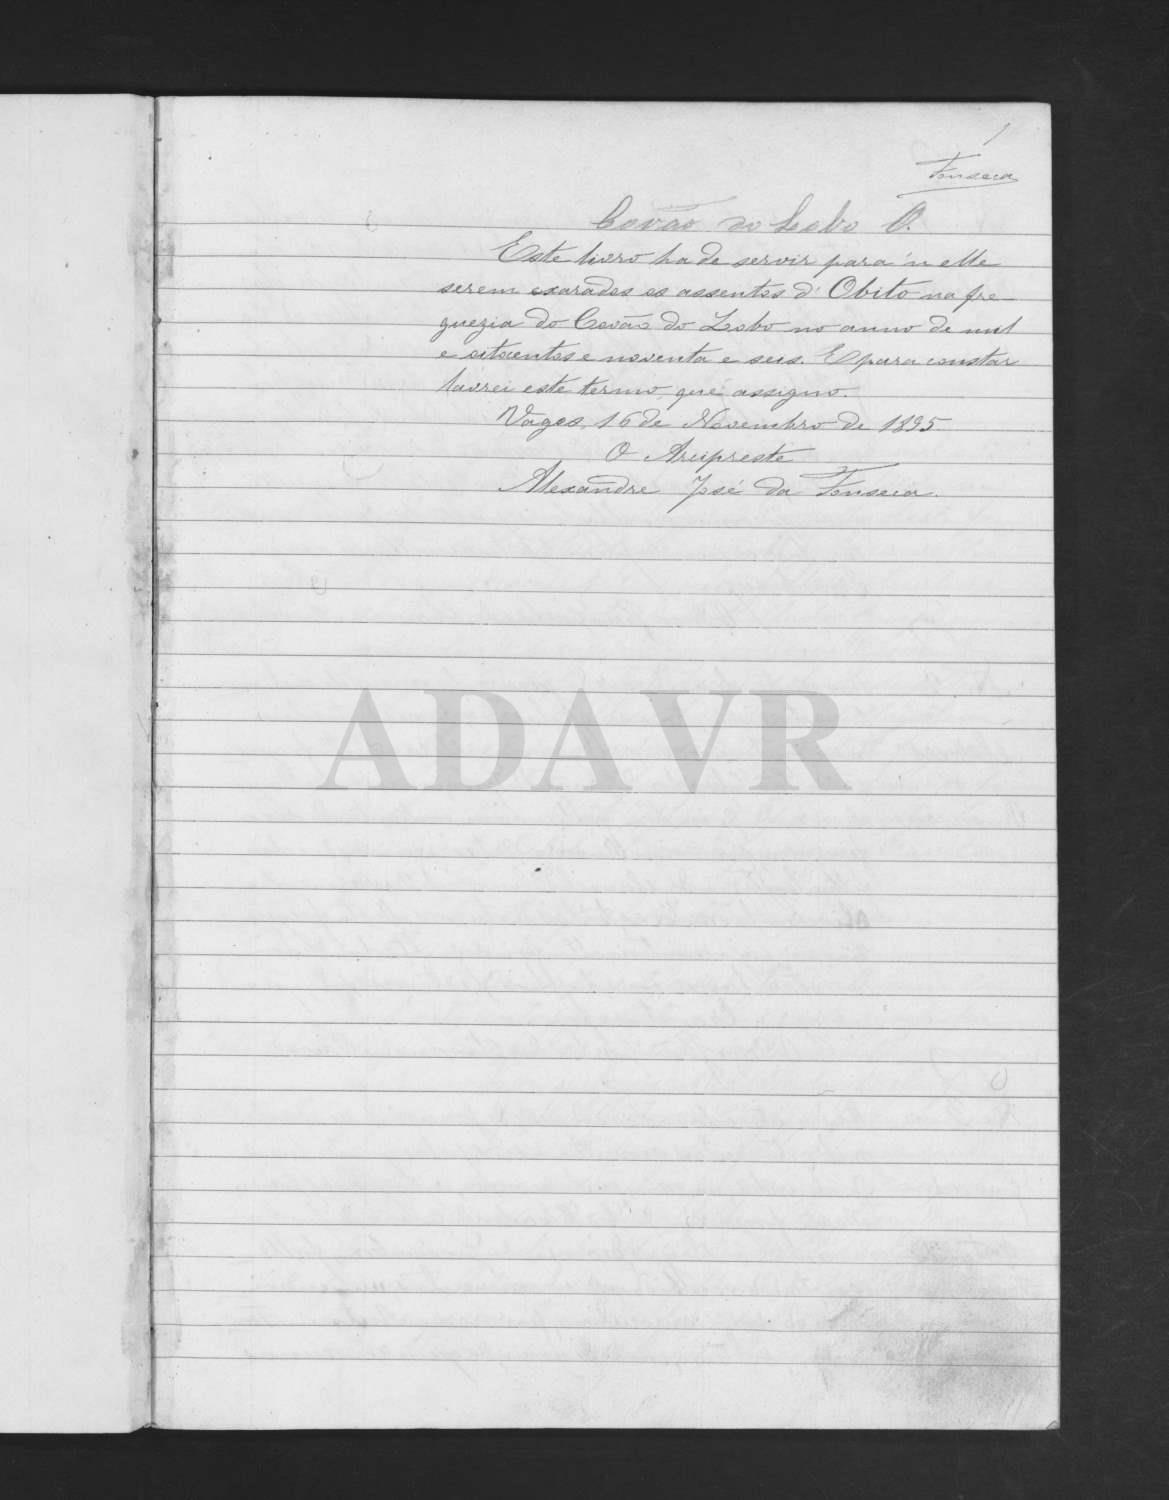 1
Fonseca
Covão do Lobo O.
Este livro ha de servir para n'elle
serem exarados os assentos d'Obito na fre-
guezia do Covão do Lobo no anno de mil
e oitocentos e noventa e seis. E para constar
lavrei este termo, que assigno.
Vagos, 16 de Novembro de 1895
O Arcipreste
Alexandre José da Fonseca.
ADAVR